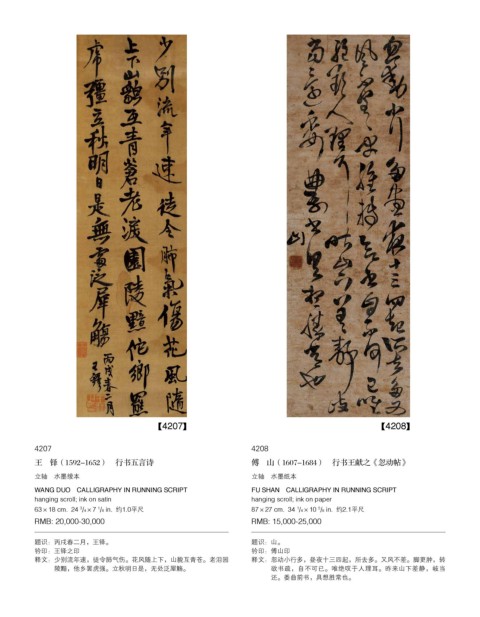 少別流年速徒令肺氣傷花風隨
上下山 互青蒼老淚園陵黯佗鄉羆
虎彊立秋明日是無處泛犀觴
丙戌春二月
王鐸
山
【4207】
【4208】
4207
王　铎（1592-1652）　行书五言诗
立轴　水墨绫本
WANG DUO　CALLIGRAPHY IN RUNNING SCRIPT
hanging scroll; ink on satin
63×18 cm.  24 3/4×7 1/8 in.  约1.0平尺
RMB: 20,000-30,000
题识：丙戌春二月，王铎。
钤印：王铎之印
释文：少别流年速，徒令肺气伤。花风随上下，山 互青苍。老泪园
陵黯，他乡罴虎强。立秋明日是，无处泛犀觞。
4208
傅　山（1607-1684）　行书王献之《忽动帖》
立轴　水墨纸本
FU SHAN　CALLIGRAPHY IN RUNNING SCRIPT
hanging scroll; ink on paper
87×27 cm.  34 1/4×10 5/8 in.  约2.1平尺
RMB: 15,000-25,000
题识：山。
钤印：傅山印
释文：忽动小行多，昼夜十三四起，所去多。又风不差。脚更肿，转
欲书疏，自不可已。唯绝叹于人理耳。昨来山下差静，岐当
还。委曲前书，具想胜常也。